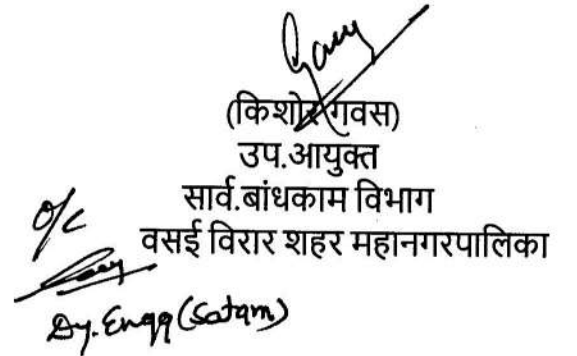 (किशोर गवस)
उप.आयुक्त
सार्व.बांधकाम विभाग
वसई विरार शहर महानगरपालिका
o/c
Dy. Engg (Satam)